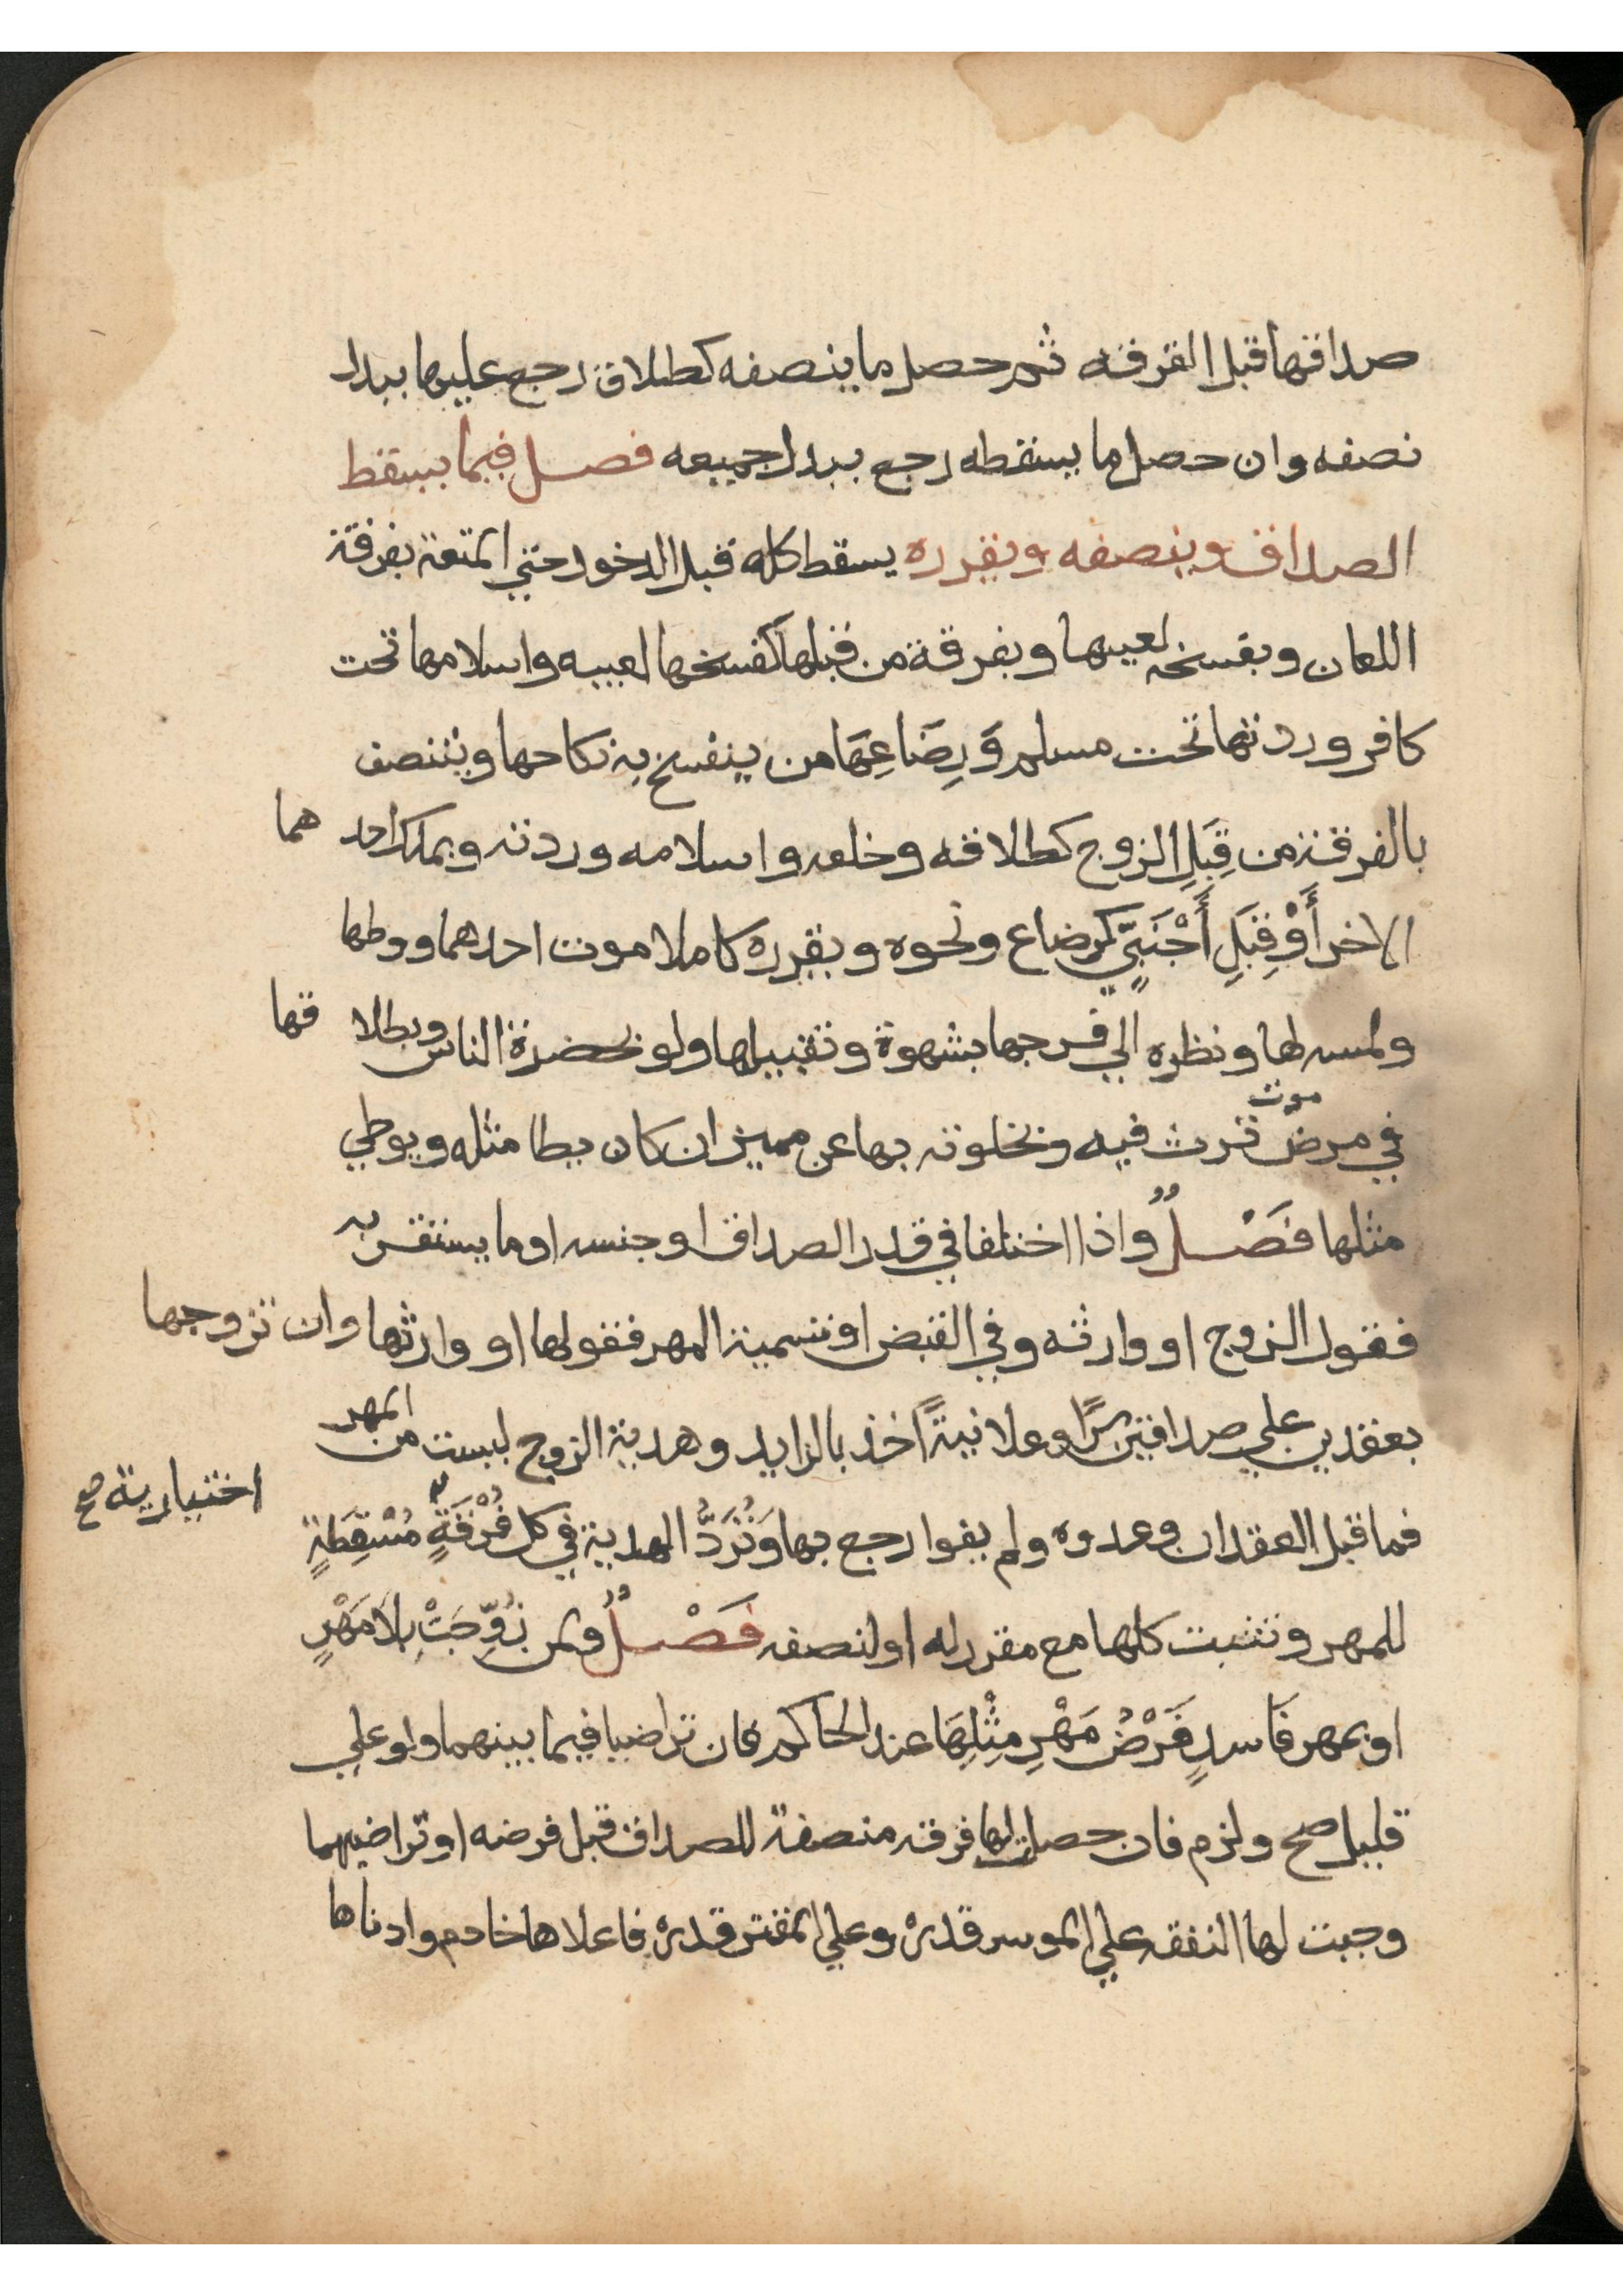 صداقها قبل الفرقه ثم حصل ما ينصفه كطلاق رجع عليها ببدل
نصفه وان حصل ما يسقطه رجع ببدل جميعه فصل فيما يسقط
الصداق وينصفه ويقرره يسقط كله قبل الدخول حتي المتعة بفرقة
اللعان وبفسخه لعيبها وبفرقة من قبلها كفسخها لعيبه واسلامها تحت
كافر وردتها تحت مسلم وَرِضَاعِهَا من ينفسخ به نكاحها ويتنصف
بالفرقة من قِبَلِ الزوج كطلاقه وخلعه واسلامه وردته وبملك احدهما
الاخر أَوْ قِبَلِ أَجْنَبِيٍّ كرضاع ونحوه ويقرره كاملا موت احدهما ووطها
ولمسه لها ونظره الي فرجها بشهوة وتقبيلها ولو بحضرة الناس وبطلاقها
في مرض موت ترث فيه وبخلوته بها عن مميز ان كان يطا مثله ويوطي
مثلها فَصْلٌ واذا اختلفا في قدر الصداق او جنسه او ما يستقر به
فقول الزوج او وارثه وفي القبض او تسمية المهر فقولها او وارثها وان تزوجها
بعقدين علي صداقين سرًا وعلانيةً اخذ بالزايد وهدية الزوج ليست من المهر
فما قبل العقد ان وعدوه ولم يفوا رجع بها وَتُرَدُّ الهدية في كل فُرْقَةٍ اختيارية صح مُسْقِطَةٍ
للمهر وتثبت كلها مع مقرر له او لنصفه فَصْلٌ ولمن زُوِّجَتْ بِلَا مَهْرٍ
او بمهر فَاسدٍ فَرْضُ مَهْرِ مِثْلِهَا عند الحاكم فان تراضيا فيما بينهما ولو علي
قليل صح ولزم فان حصلت لها فرقه منصفة للصداق قبل فرضه او تراضيهما
وجبت لها النفقه علي الموسر قدره وعلي المقتر قدره فاعلاها خادم وادناها